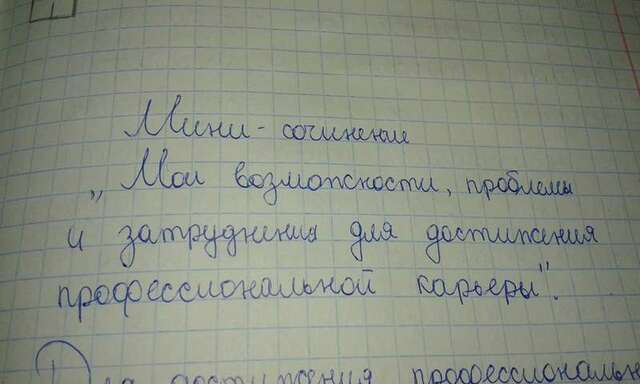 Мини-сочинение
„Мои возможности, проблемы
и затруднения для достижения
профессиональной карьеры".
Для достижения профессиональн